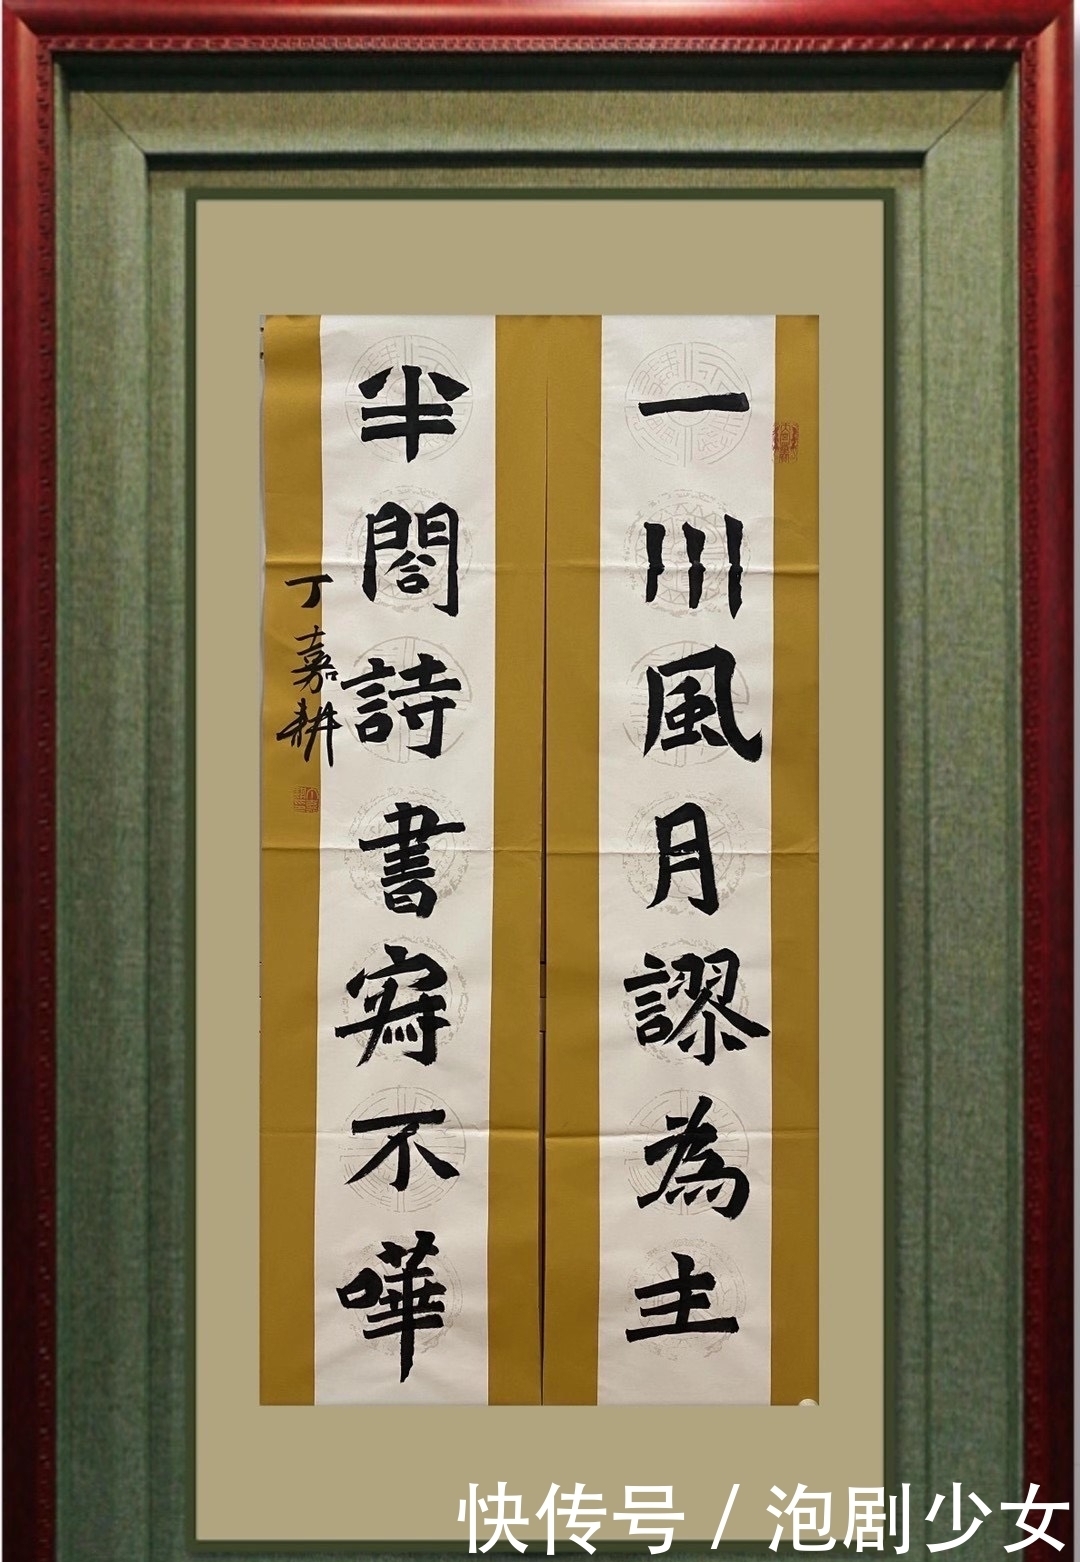 一川風月謬為主
半閤詩書寫不嘩
丁嘉耕
快传号 / 泡剧少女